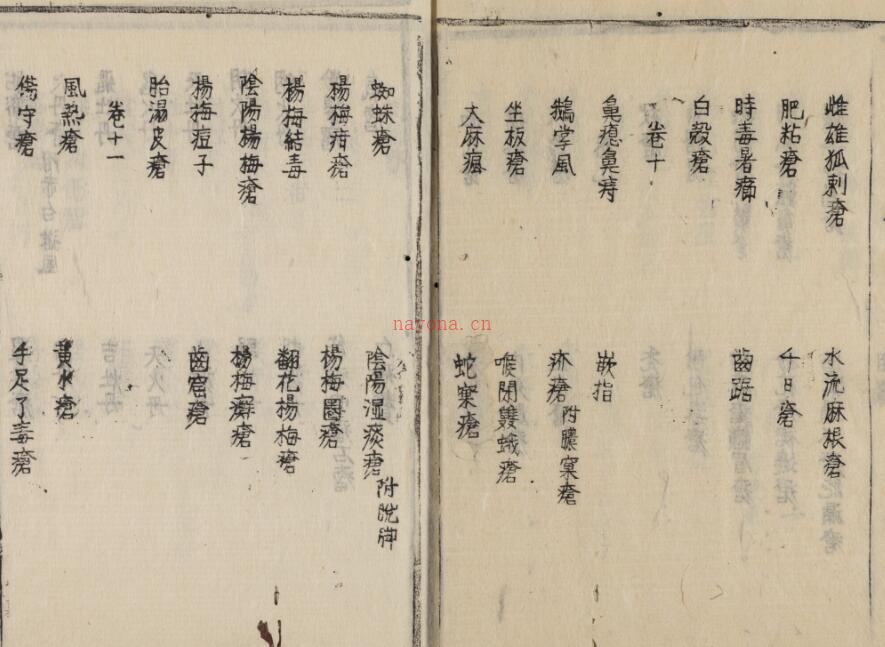 雌雄狐剌瘡　水流麻根瘡
肥粘瘡　千日瘡
時毒暑癤　齒踞
白殼瘡
卷十
鼻瘜鼻痔　嵌指
鵝掌風　疥瘡 附膿窠瘡
坐板瘡　喉閉雙蛾瘡
大麻瘋　蛇窠瘡
蜘蛛瘡　陰陽湿痰瘡 附脱脚
楊梅疳瘡　楊梅圈瘡
楊梅結毒　翻花楊梅瘡
陰陽楊梅瘡　楊梅癬瘡
楊梅痘子　齒窟瘡
胎溻皮瘡
卷十一
風热瘡　黄水瘡
傷守瘡　手足了毒瘡
nayona.cn